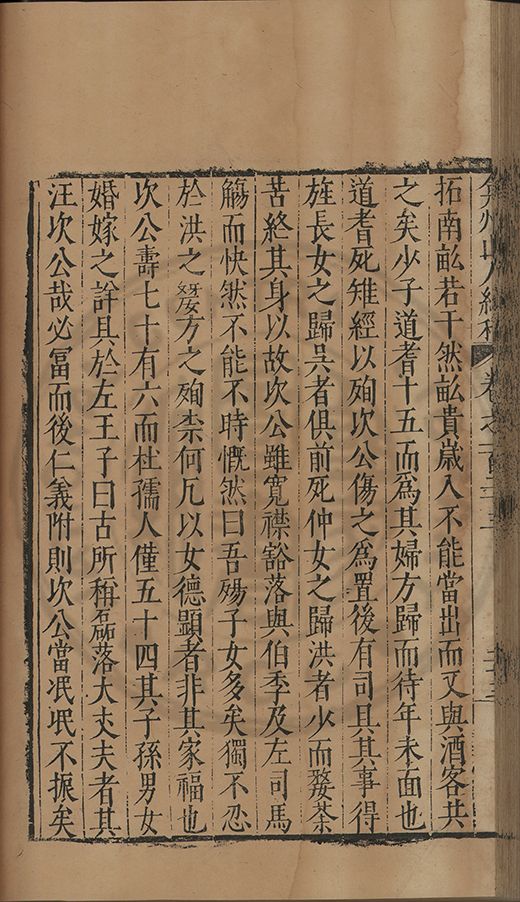 弇州山人續稿 卷之一百二十三
拓南畆若干然畆貴歳入不能當出而又與酒客共
之矣少子道耆十五而爲其婦方歸而待年未面也
道耆死雉經以殉次公傷之爲置後有司具其事得
旌長女之歸吳者俱前死仲女之歸洪者少而嫠荼
苦終其身以故次公雖寛襟豁落與伯季及左司馬
觴而快然不能不時慨然曰吾殤子女多矣獨不忍
於洪之嫠方之殉柰何凢以女德顯者非其家福也
次公壽七十有六而杜孺人僅五十四其子孫男女
婚嫁之詳具於左王子曰古所稱磊落大丈夫者其
汪次公哉必冨而後仁義附則次公當泯泯不振矣